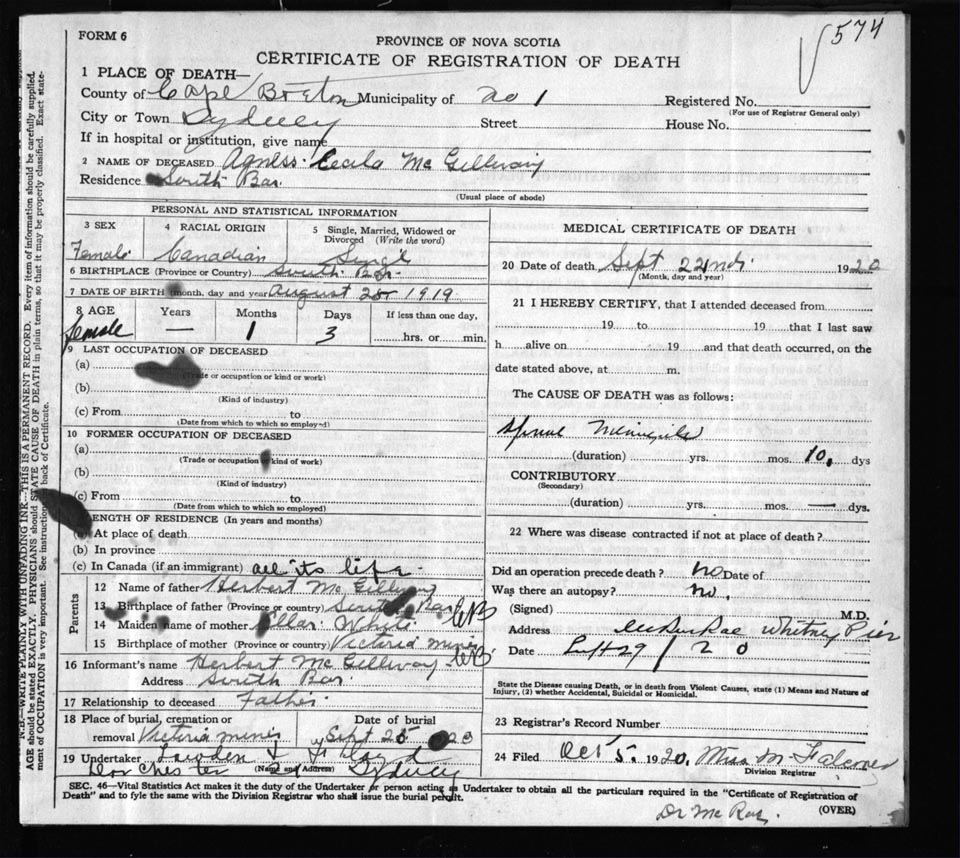 574
FORM 6
PROVINCE OF NOVA SCOTIA
CERTIFICATE OF REGISTRATION OF DEATH
1 PLACE OF DEATH—
County of Cape Breton Municipality of no 1 Registered No.
(For use of Registrar General only)
City or Town Sydney Street House No.
If in hospital or institution, give name
2 NAME OF DECEASED Agness Cecila Mc Gillivary
Residence South Bar.
(Usual place of abode)
PERSONAL AND STATISTICAL INFORMATION
3 SEX 4 RACIAL ORIGIN 5 Single, Married, Widowed or Divorced (Write the word)
Female Canadian Singl
6 BIRTHPLACE (Province or Country) South Bar
7 DATE OF BIRTH (month, day and year) August 28 1919
8 AGE Years Months Days If less than one day,
female — 1 3 hrs. or min.
9 LAST OCCUPATION OF DECEASED
(a)
(Trade or occupation or kind or work)
(b)
(Kind of industry)
(c) From to
(Date from which to which so employed)
10 FORMER OCCUPATION OF DECEASED
(a)
(Trade or occupation kind of work)
(b)
(Kind of industry)
(c) From to
(Date from which to which so employed)
LENGTH OF RESIDENCE (In years and months)
At place of death
(b) In province
(c) In Canada (if an immigrant) all its life
Parents
12 Name of father Herbert Mc Gillivary
13 Birthplace of father (Province or country) South Bar CB
14 Maiden name of mother Ellar White
15 Birthplace of mother (Province or country) Victoria mines CB
16 Informant's name Herbert Mc Gillivary
Address South Bar.
17 Relationship to deceased Father
18 Place of burial, cremation or removal Victoria mines Date of burial Sept 25
19 Undertaker
(Name and Address)
Dorchester St Sydney
MEDICAL CERTIFICATE OF DEATH
20 Date of death Sept 22nd 1920
(Month, day and year)
21 I HEREBY CERTIFY, that I attended deceased from
19 to 19 that I last saw
h alive on 19 and that death occurred, on the
date stated above, at m.
The CAUSE OF DEATH was as follows:
Spinal Meningitis
(duration) yrs. mos. 10. dys
CONTRIBUTORY
(Secondary)
(duration) yrs. mos. — dys.
22 Where was disease contracted if not at place of death?
Did an operation precede death? no Date of
Was there an autopsy? no.
(Signed) M.D.
Address Whitney Pier
Date Sept 29 / 20
State the Disease causing Death, or in death from Violent Causes, state (1) Means and Nature of
Injury, (2) whether Accidental, Suicidal or Homicidal.
23 Registrar's Record Number
24 Filed Oct 5. 1920, Miss M. Falconer
Division Registrar
SEC. 46—Vital Statistics Act makes it the duty of the Undertaker or person acting as Undertaker to obtain all the particulars required in the "Certificate of Registration of
Death" and to fyle the same with the Division Registrar who shall issue the burial permit.
(OVER)
Dr Mc Rae.
N.B.—WRITE PLAINLY WITH UNFADING INK—THIS IS A PERMANENT RECORD. Every item of information should be carefully supplied.
AGE should be stated EXACTLY. PHYSICIANS should STATE CAUSE OF DEATH in plain terms, so that it may be properly classified. Exact state-
ment of OCCUPATION is very important. See instructions back of Certificate.